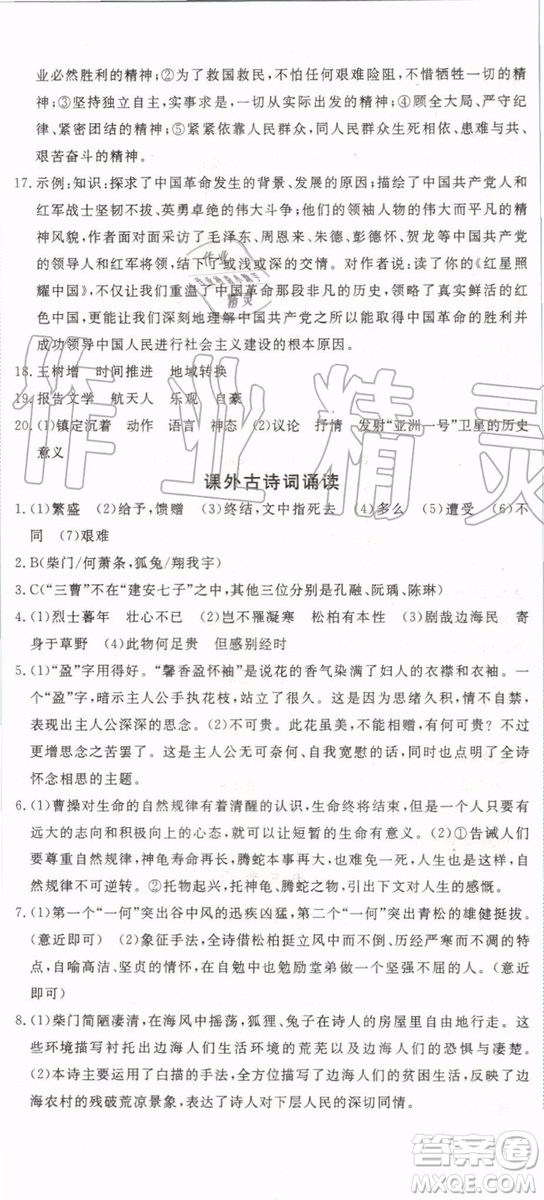 业必然胜利的精神；②为了救国救民，不怕任何艰难险阻，不惜牺牲一切的精
神；③坚持独立自主，实事求是，一切从实际出发的精神；④顾全大局、严守纪
律、紧密团结的精神；⑤紧紧依靠人民群众，同人民群众生死相依、患难与共、
艰苦奋斗的精神。
17. 示例：知识：探求了中国革命发生的背景、发展的原因；描绘了中国共产党人和
红军战士坚韧不拔、英勇卓绝的伟大斗争，他们的领袖人物的伟大而平凡的精
神风貌，作者面对面采访了毛泽东、周恩来、朱德、彭德怀、贺龙等中国共产党
的领导人和红军将领，结下了或浅或深的交情。对作者说：读了你的《红星照
耀中国》，不仅让我们重温了中国革命那段非凡的历史，领略了真实鲜活的红
色中国，更让我们深刻地理解中国共产党之所以能取得中国革命的胜利并
成功领导中国人民进行社会主义建设的根本原因。
18. 王树增　时间推进　地域转换
19. 报告文学　航天人　乐观　自豪
20. (1)镇定沉着　动作　语言　神态　(2)议论　抒情　发射“亚洲一号”卫星的历史
意义
课外古诗词诵读
1. (1)繁盛　(2)给予，馈赠　(3)终结，文中指死去　(4)多么　(5)遭受　(6)不
同　(7)艰难
2. B(柴门/何萧条，狐兔/翔我宇)
3. C(“三曹”不在“建安七子”之中，其他三位分别是孔融、阮瑀、陈琳)
4. (1)烈士暮年　壮心不已　(2)岂不罹凝寒　松柏有本性　(3)剧哉边海民　寄
身于草野　(4)此物何足贵　但感别经时
5. (1)“盈”字用得好。“馨香盈怀袖”是说花的香气染满了妇人的衣襟和衣袖。一
个“盈”字，暗示主人公手执花枝，站立了很久。这是因为思绪久积，情不自禁，
表现出主人公深深的思念。(2)不可贵。此花虽美，不能相赠，有何可贵？不过
更增加思念之苦罢了。这是主人公无可奈何、自我宽慰的话，同时也点明了全诗
怀念相思的主题。
6. (1)曹操对生命的自然规律有着清醒的认识，生命终将结束，因此，人们要有
远大的志向和积极向上的心态，就可以让短暂的生命有意义。(2)①告诫人们
要尊重自然规律，神龟寿命再长，腾蛇本事再大，也难免一死，人也是一样，自
然规律不可逆转。②托物起兴，托神龟、腾蛇引出下文对人生的感慨。
7. (1)第一个“一何”突出谷中风的迅疾凶猛，第二个“一何”突出青松的雄健挺拔。
(意近即可)　(2)象征手法，全诗借松柏挺立风中而不倒、历经严寒而不凋的特
点，自喻高洁、坚贞的情怀，在自勉中也勉励堂弟做一个坚强的人。(意近
即可)
8. (1)柴门简陋凄清，在海风中摇荡，狐狸、兔子在诗人的房屋里自由地行走。这
些环境描写衬托出边海人们生活环境的荒芜以及边海人们的艰辛与凄楚。
(2)本诗主要运用了白描的手法，大篇幅地描写边海人们的贫困生活，反映了边
海农村的残破荒凉景象，表达了诗人对下层人民的深切同情。
作业精灵
答案圈
MXQE.COM